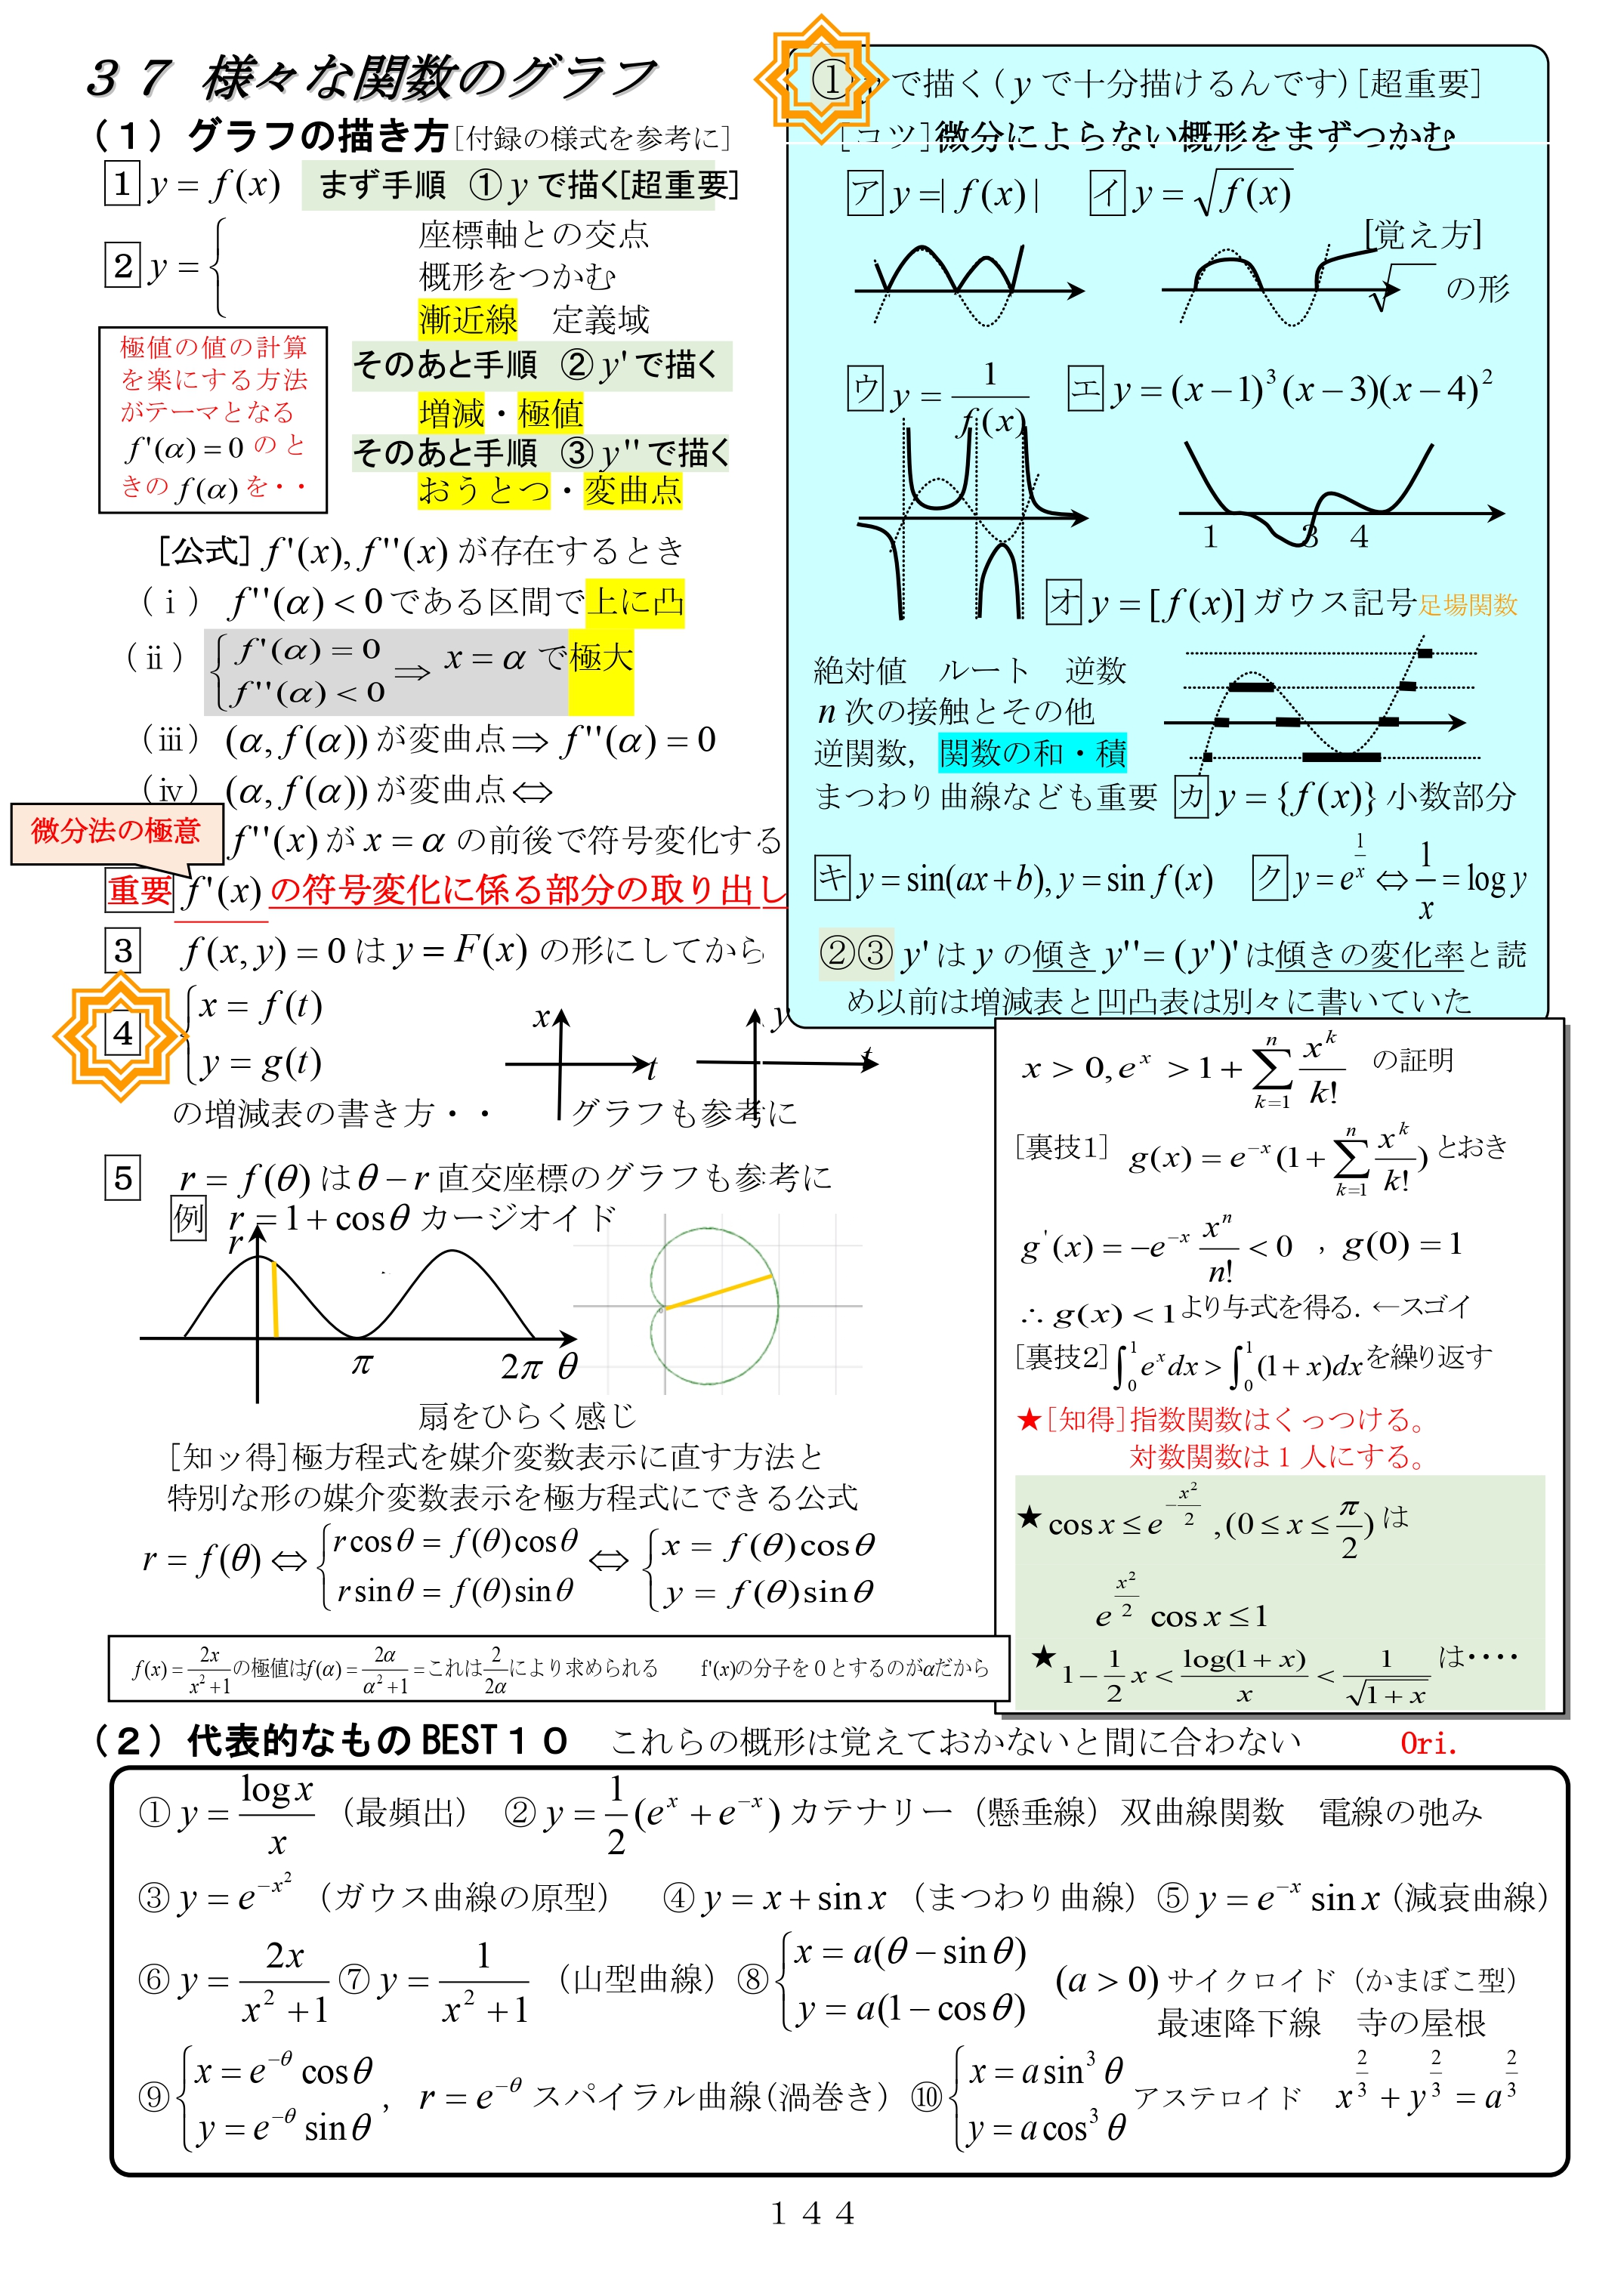 ３７ 様々な関数のグラフ
（１）グラフの描き方[付録の様式を参考に]
1 y = f(x) まず手順 ①yで描く[超重要]
2 y = {
座標軸との交点
概形をつかむ
漸近線 定義域
そのあと手順 ②y'で描く
増減・極値
そのあと手順 ③y''で描く
おうとつ・変曲点
極値の値の計算
を楽にする方法
がテーマとなる
f'(α) = 0 のと
きの f(α) を・・
[公式] f'(x), f''(x) が存在するとき
（ⅰ） f''(α) < 0である区間で上に凸
（ⅱ） { f'(α) = 0
f''(α) < 0 ⇒ x = α で極大
（ⅲ） (α, f(α)) が変曲点⇒ f''(α) = 0
（ⅳ） (α, f(α)) が変曲点⇔
f''(x) が x = α の前後で符号変化する
微分法の極意
重要 f'(x) の符号変化に係る部分の取り出し
3 f(x, y) = 0 は y = F(x) の形にしてから
4 { x = f(t)
y = g(t)
x t y t
の増減表の書き方・・ グラフも参考に
5 r = f(θ) は θ − r 直交座標のグラフも参考に
例 r = 1 + cosθ カージオイド
r
π 2π θ
扇をひらく感じ
[知ッ得]極方程式を媒介変数表示に直す方法と
特別な形の媒介変数表示を極方程式にできる公式
r = f(θ) ⇔ { r cosθ = f(θ)cosθ ⇔ { x = f(θ)cosθ
r sinθ = f(θ)sinθ y = f(θ)sinθ
f(x) = 2x/(x²+1) の極値は f(α) = 2α/(α²+1) = これは 2/2α により求められる f'(x)の分子を０とするのがαだから
①yで描く(yで十分描けるんです)[超重要]
[コツ]微分によらない概形をまずつかむ
ア y =| f(x) | イ y = √f(x)
[覚え方]
√ の形
ウ y = 1/f(x) エ y = (x − 1)³(x − 3)(x − 4)²
1 3 4
オ y = [f(x)] ガウス記号 足場関数
絶対値 ルート 逆数
n 次の接触とその他
逆関数，関数の和・積
まつわり曲線なども重要 カ y = {f(x)} 小数部分
キ y = sin(ax + b), y = sin f(x) ク y = e^(1/x) ⇔ 1/x = log y
②③ y' は y の傾き y'' = (y')' は傾きの変化率と読
め以前は増減表と凹凸表は別々に書いていた
x > 0, e^x > 1 + Σ_{k=1}^{n} x^k/k! の証明
[裏技1] g(x) = e^(−x)(1 + Σ_{k=1}^{n} x^k/k!) とおき
g'(x) = −e^(−x) x^n/n! < 0 ，g(0) = 1
∴ g(x) < 1 より与式を得る. ←スゴイ
[裏技2] ∫₀¹ e^x dx > ∫₀¹ (1 + x)dx を繰り返す
★[知得]指数関数はくっつける。
対数関数は１人にする。
★ cos x ≤ e^(−x²/2) , (0 ≤ x ≤ π/2) は
e^(x²/2) cos x ≤ 1
★ 1 − 1/2 x < log(1 + x)/x < 1/√(1 + x) は････
（２）代表的なもの BEST１０ これらの概形は覚えておかないと間に合わない Ori.
① y = log x/x （最頻出） ② y = 1/2 (e^x + e^(−x)) カテナリー（懸垂線）双曲線関数 電線の弛み
③ y = e^(−x²) （ガウス曲線の原型） ④ y = x + sin x （まつわり曲線）⑤ y = e^(−x) sin x (減衰曲線)
⑥ y = 2x/(x² + 1) ⑦ y = 1/(x² + 1) （山型曲線）⑧ { x = a(θ − sinθ)
y = a(1 − cosθ) (a > 0) サイクロイド（かまぼこ型）
最速降下線 寺の屋根
⑨ { x = e^(−θ) cosθ
y = e^(−θ) sinθ ， r = e^(−θ) スパイラル曲線(渦巻き) ⑩ { x = a sin³θ
y = a cos³θ アステロイド x^(2/3) + y^(2/3) = a^(2/3)
１４４